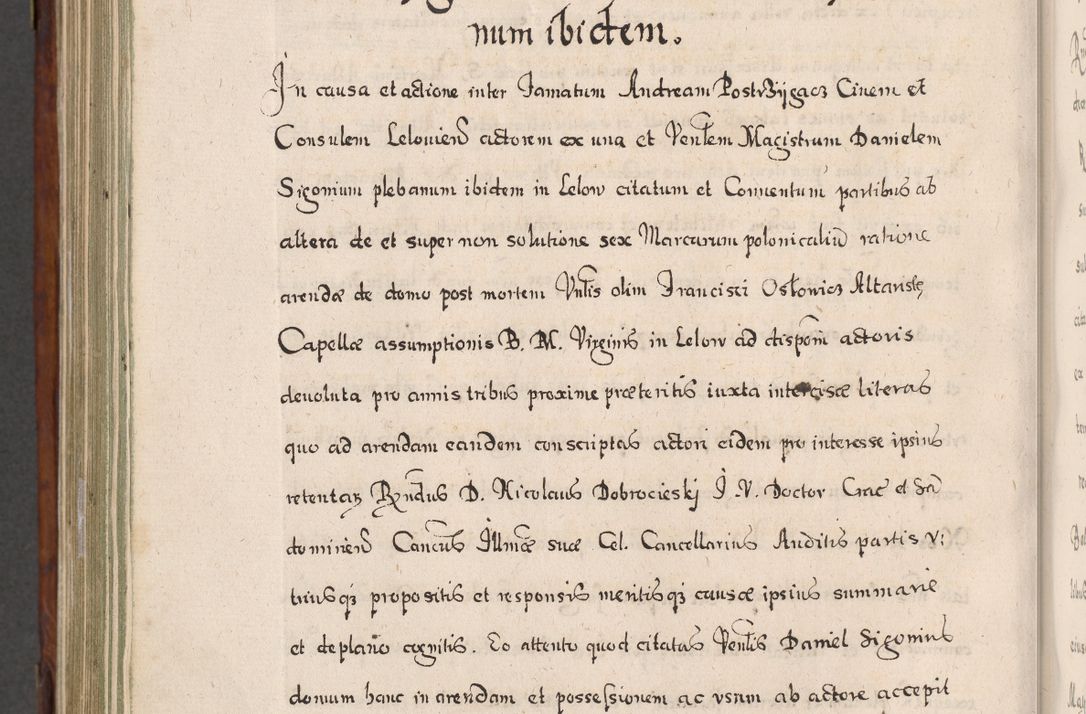 num ibidem.
In causa et actione inter Famatum Andream Postrzÿgacz Ciuem et
Consulem Louien̄ actorem ex una et Ven̄lem Magistrum Danielem
Sigonium plebanum ibidem in Lelow citatum et Conuentum partibus ab
altera de et super non solutione sex Marcarum polonicaliū ratione
arendæ de domo post mortem Vn̄lis olim Francisci Osłowicz Altaristæ
Capellæ assumptionis B. M. Virginis in Lelow ad dispon̄em actoris
deuoluta pro annis tribus proxime præteritis iuxta intercisæ literas
quo ad arendam eandem conscriptas actori eidem pro interesse ipsius
retentaȝ Rn̄dus D. Nicolaus Dobrocieskj J. V. Doctor Crac et San
domirien̄ Can̄cus Illmæ suæ Cel. Cancellarius Auditis partis v:
triusqȝ propositis et responsis meritisqȝ causæ ipsius summarie
et de plano cognitis. Eo attento quod citatus Ven̄lis Daniel Sigonius
domum hanc in arendam et possessionem ac vsum ab actore accepit